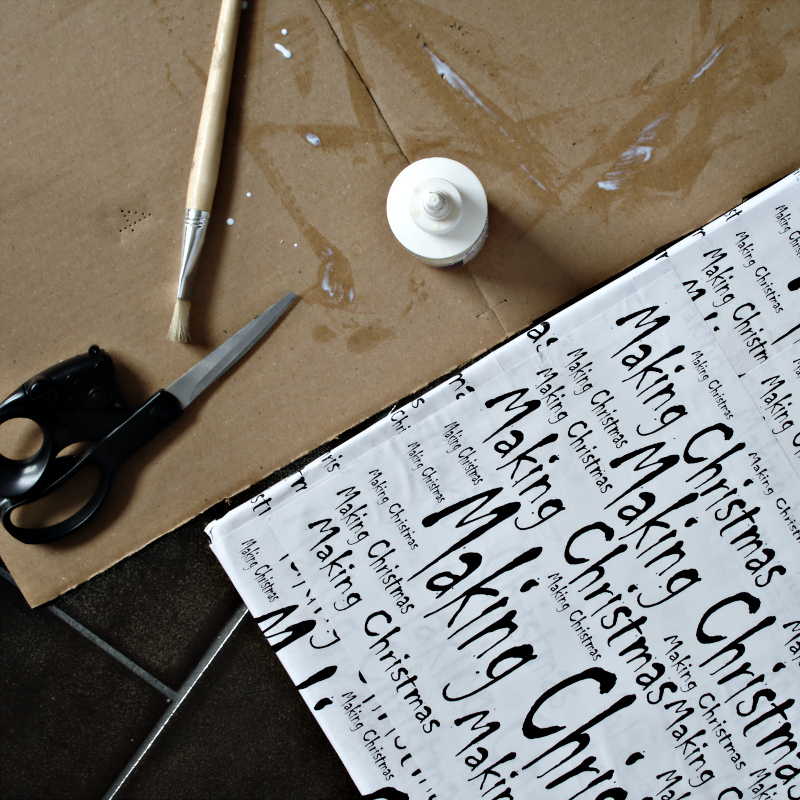 Making Christmas
Making Christmas
Making Christmas
Making Christmas
Making Christmas
Making Christmas
Making Christmas
Making Christmas
Making Christmas
Making Christmas
Making Christmas
Making Christmas
Making Christmas
Making Christmas
Making Christmas
Making Christmas
Making Christmas
Making Christmas
Making Chris
Making